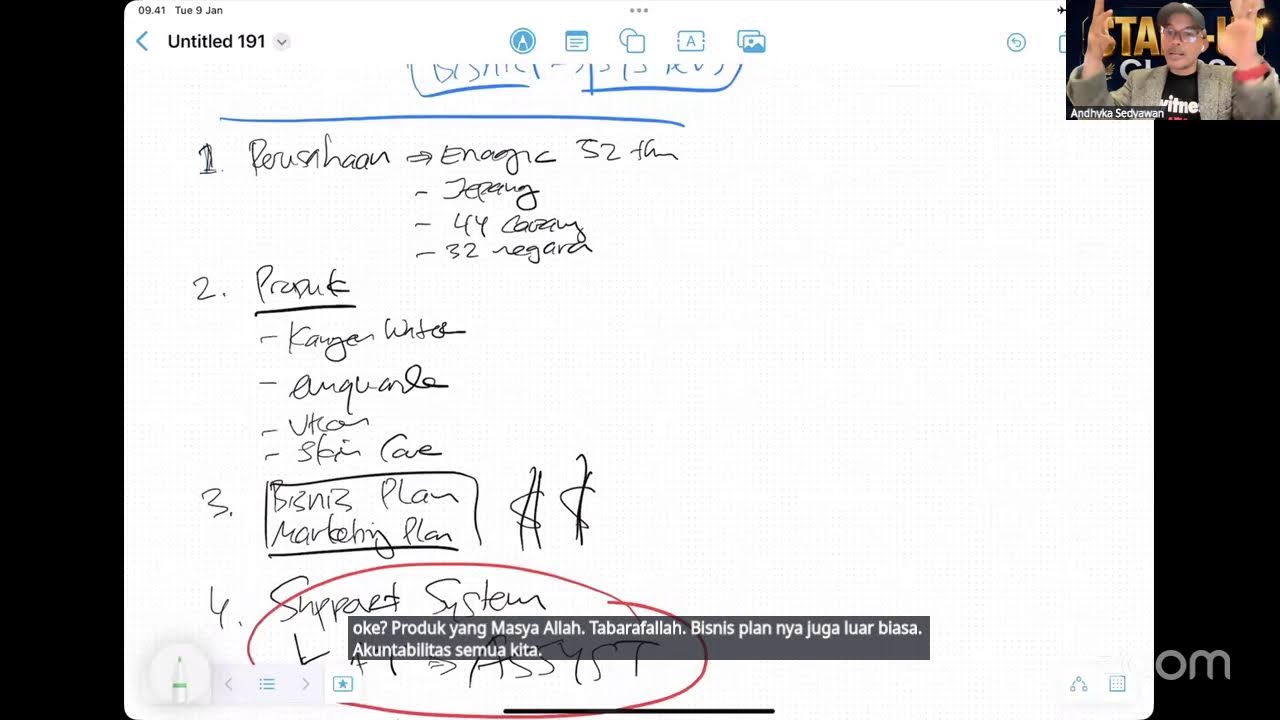 09.41 Tue 9 Jan
Untitled 191
START-UP
Andhyka Sedyawan
1. Perusahaan → Enagic 52 thn
- Jepang
- 44 Cabang
- 32 negara
2. Produk
- Kangen Water
- Ukon
- Skin Care
3. Bisnis Plan
Marketing Plan
$ $
4. Support System
ASSYST
oke? Produk yang Masya Allah. Tabarafallah. Bisnis plan nya juga luar biasa.
Akuntabilitas semua kita.